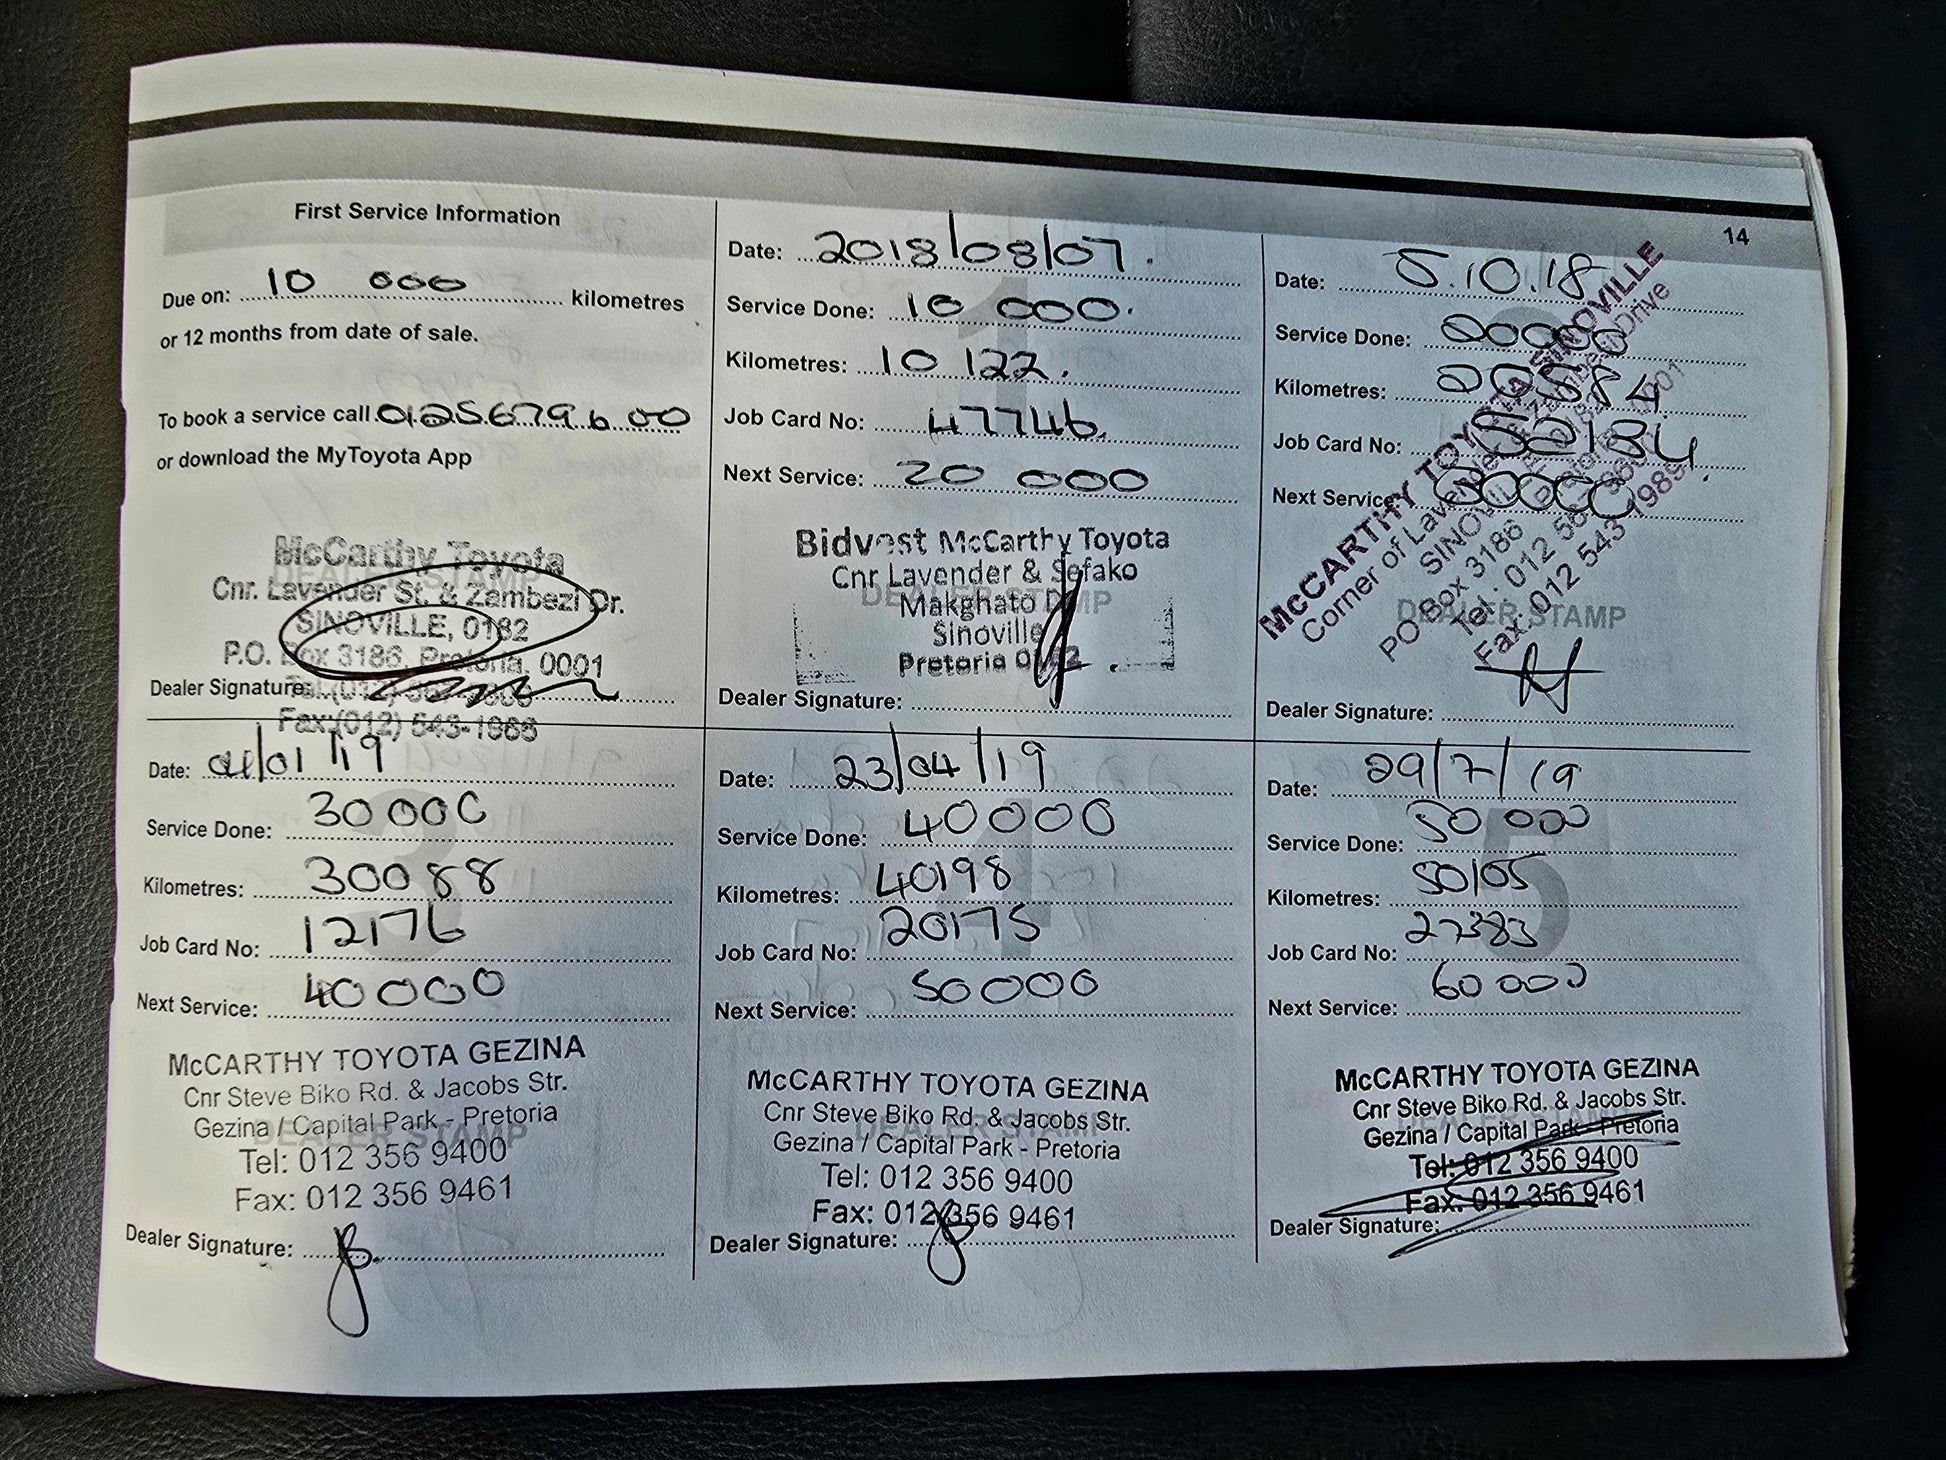 14
First Service Information
Due on: 10 000 kilometres
or 12 months from date of sale.
To book a service call 0125679600
or download the MyToyota App
McCarthy Toyota
Cnr. Lavender St. & Zambezi Dr.
SINOVILLE, 0182
P.O. Box 3186, Pretoria, 0001
Dealer Signature:
Fax:(012) 543-1988
Date: 2018/08/07.
Service Done: 10 000.
Kilometres: 10 122.
Job Card No: 47746.
Next Service: 20 000
Bidvest McCarthy Toyota
Cnr Lavender & Sefako
DEALER STAMP
Makghato
Sinoville
Pretoria 0182
Dealer Signature:
Date: 5.10.18
Service Done: 20000
Kilometres: 20584
Job Card No: 52184
Next Service: 30000
McCARTHY TOYOTA SINOVILLE
Corner of Lavender Zambezi Drive
SINOVILLE 0182
PO Box 3186 Pretoria 0001
Tel: 012 567 9600
Fax: 012 543 1989
DEALER STAMP
Dealer Signature:
3
Date: 04/01/19
Service Done: 30000
Kilometres: 30088
Job Card No: 12176
Next Service: 40000
McCARTHY TOYOTA GEZINA
Cnr Steve Biko Rd. & Jacobs Str.
Gezina / Capital Park - Pretoria
DEALER STAMP
Tel: 012 356 9400
Fax: 012 356 9461
Dealer Signature:
4
Date: 23/04/19
Service Done: 40000
Kilometres: 40198
Job Card No: 20175
Next Service: 50000
McCARTHY TOYOTA GEZINA
Cnr Steve Biko Rd. & Jacobs Str.
DEALER STAMP
Gezina / Capital Park - Pretoria
Tel: 012 356 9400
Fax: 012 356 9461
Dealer Signature:
5
Date: 29/7/19
Service Done: 50 000
Kilometres: 50105
Job Card No: 27383
Next Service: 60 000
McCARTHY TOYOTA GEZINA
Cnr Steve Biko Rd. & Jacobs Str.
DEALER STAMP
Gezina / Capital Park - Pretoria
Tel: 012 356 9400
Fax: 012 356 9461
Dealer Signature: